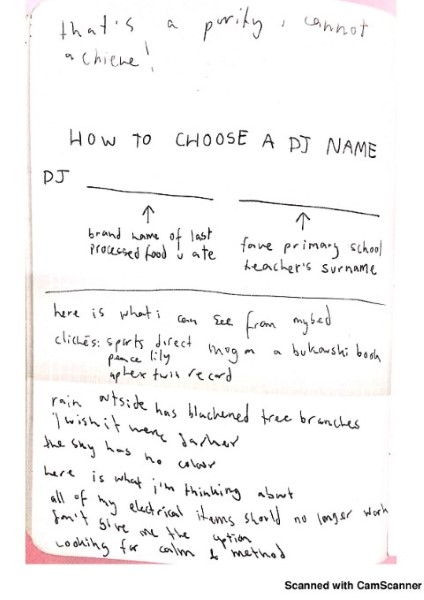 that's a purity i cannot
achieve!
HOW TO CHOOSE A DJ NAME
DJ
brand name of last
processed food u ate
fave primary school
teacher's surname
here is what i can see from my bed
clichés: sports direct mug on a bukowski book
peace lily
aphex twin record
rain outside has blackened tree branches
i wish it were darker
the sky has no colour
here is what i'm thinking about
all of my electrical items should no longer work
don't give me the option
looking for calm & method
Scanned with CamScanner